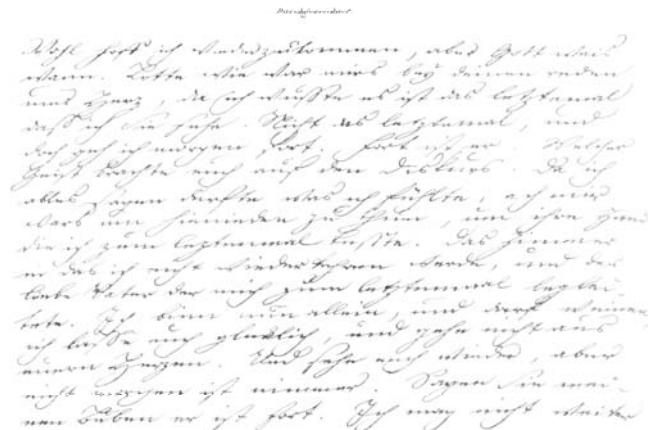 Wohl hoff ich wiederzukommen, aber Gott weis
wann. Lotte wie war mirs bey deinen reden
ums Herz, da ich wusste es ist das letztemal
dass ich Sie sehe. Nicht das letztemal, und
doch geh ich morgen fort. Fort ist er. Welcher
Geist brachte euch auf den Diskurs. Da ich
alles sagen durfte was ich fühlte, ach mir
wars um hienieden zu thun, um ihre Hand
die ich zum letztenmal küsste. Das Zimmer
in das ich nicht wiederkehren werde, und der
liebe Vater der mich zum letztenmal beglei-
tete. Ich binn nun allein, und darf weinen,
ich lasse euch glücklich, und gehe nicht aus
euern Herzen. Und sehe euch wieder, aber
nicht morgen ist nimmer. Sagen Sie mei-
nen Buben er ist fort. Ich mag nicht weiter